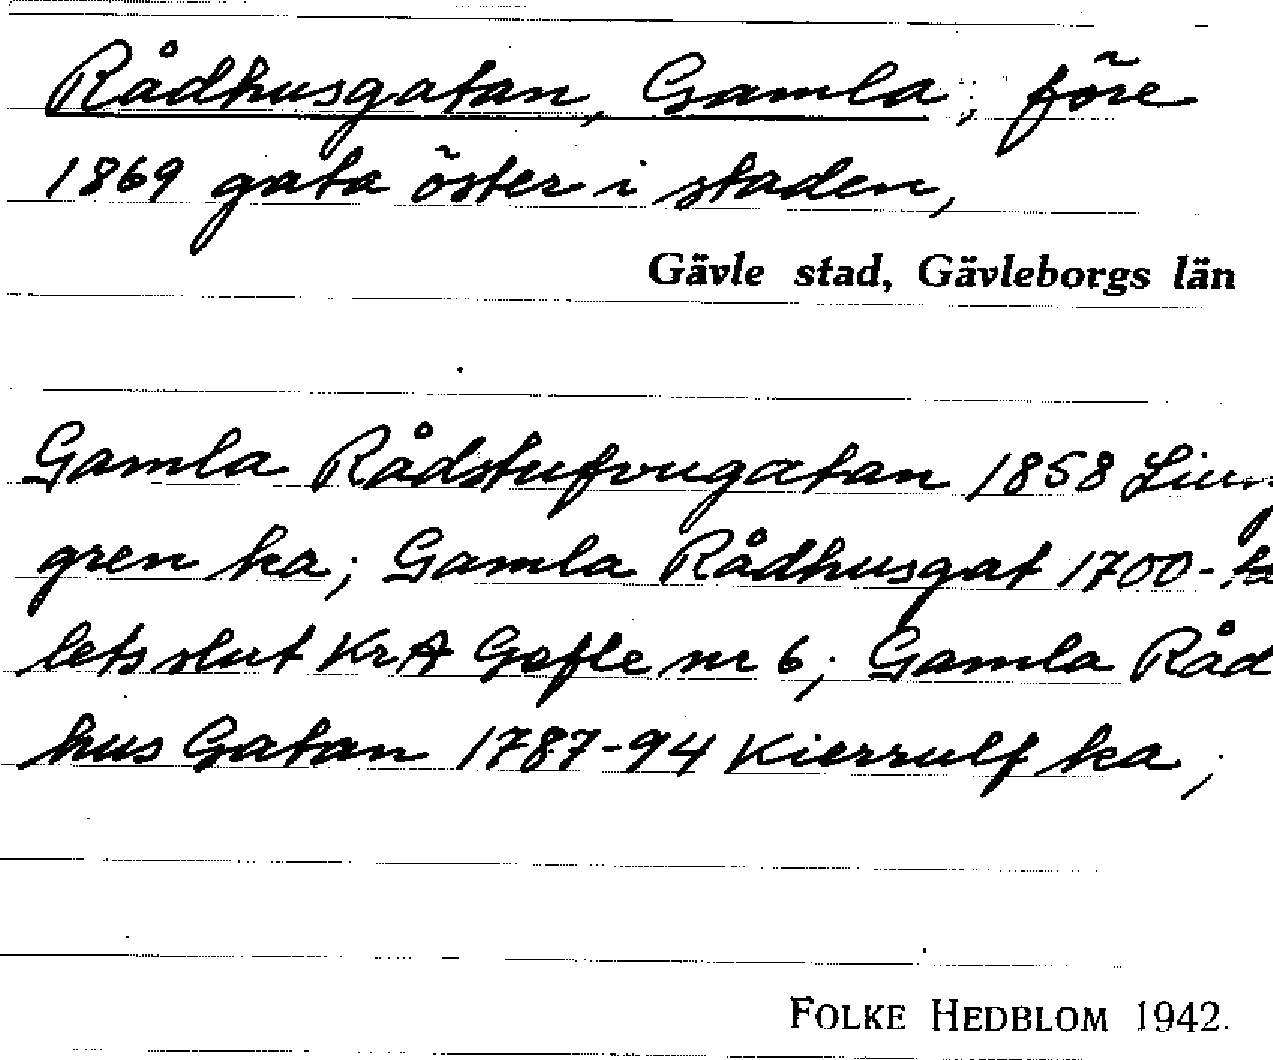 Rådhusgatan, Gamla; före
1869 gata öster i staden,
Gävle stad, Gävleborgs län
Gamla Rådstufvugatan 1858 Ljung
gren ka; Gamla Rådhusgat 1700-ta
lets slut KrA Gefle nr 6; Gamla Råd
hus Gatan 1787-94 Kierrulf ka;
FOLKE HEDBLOM 1942.